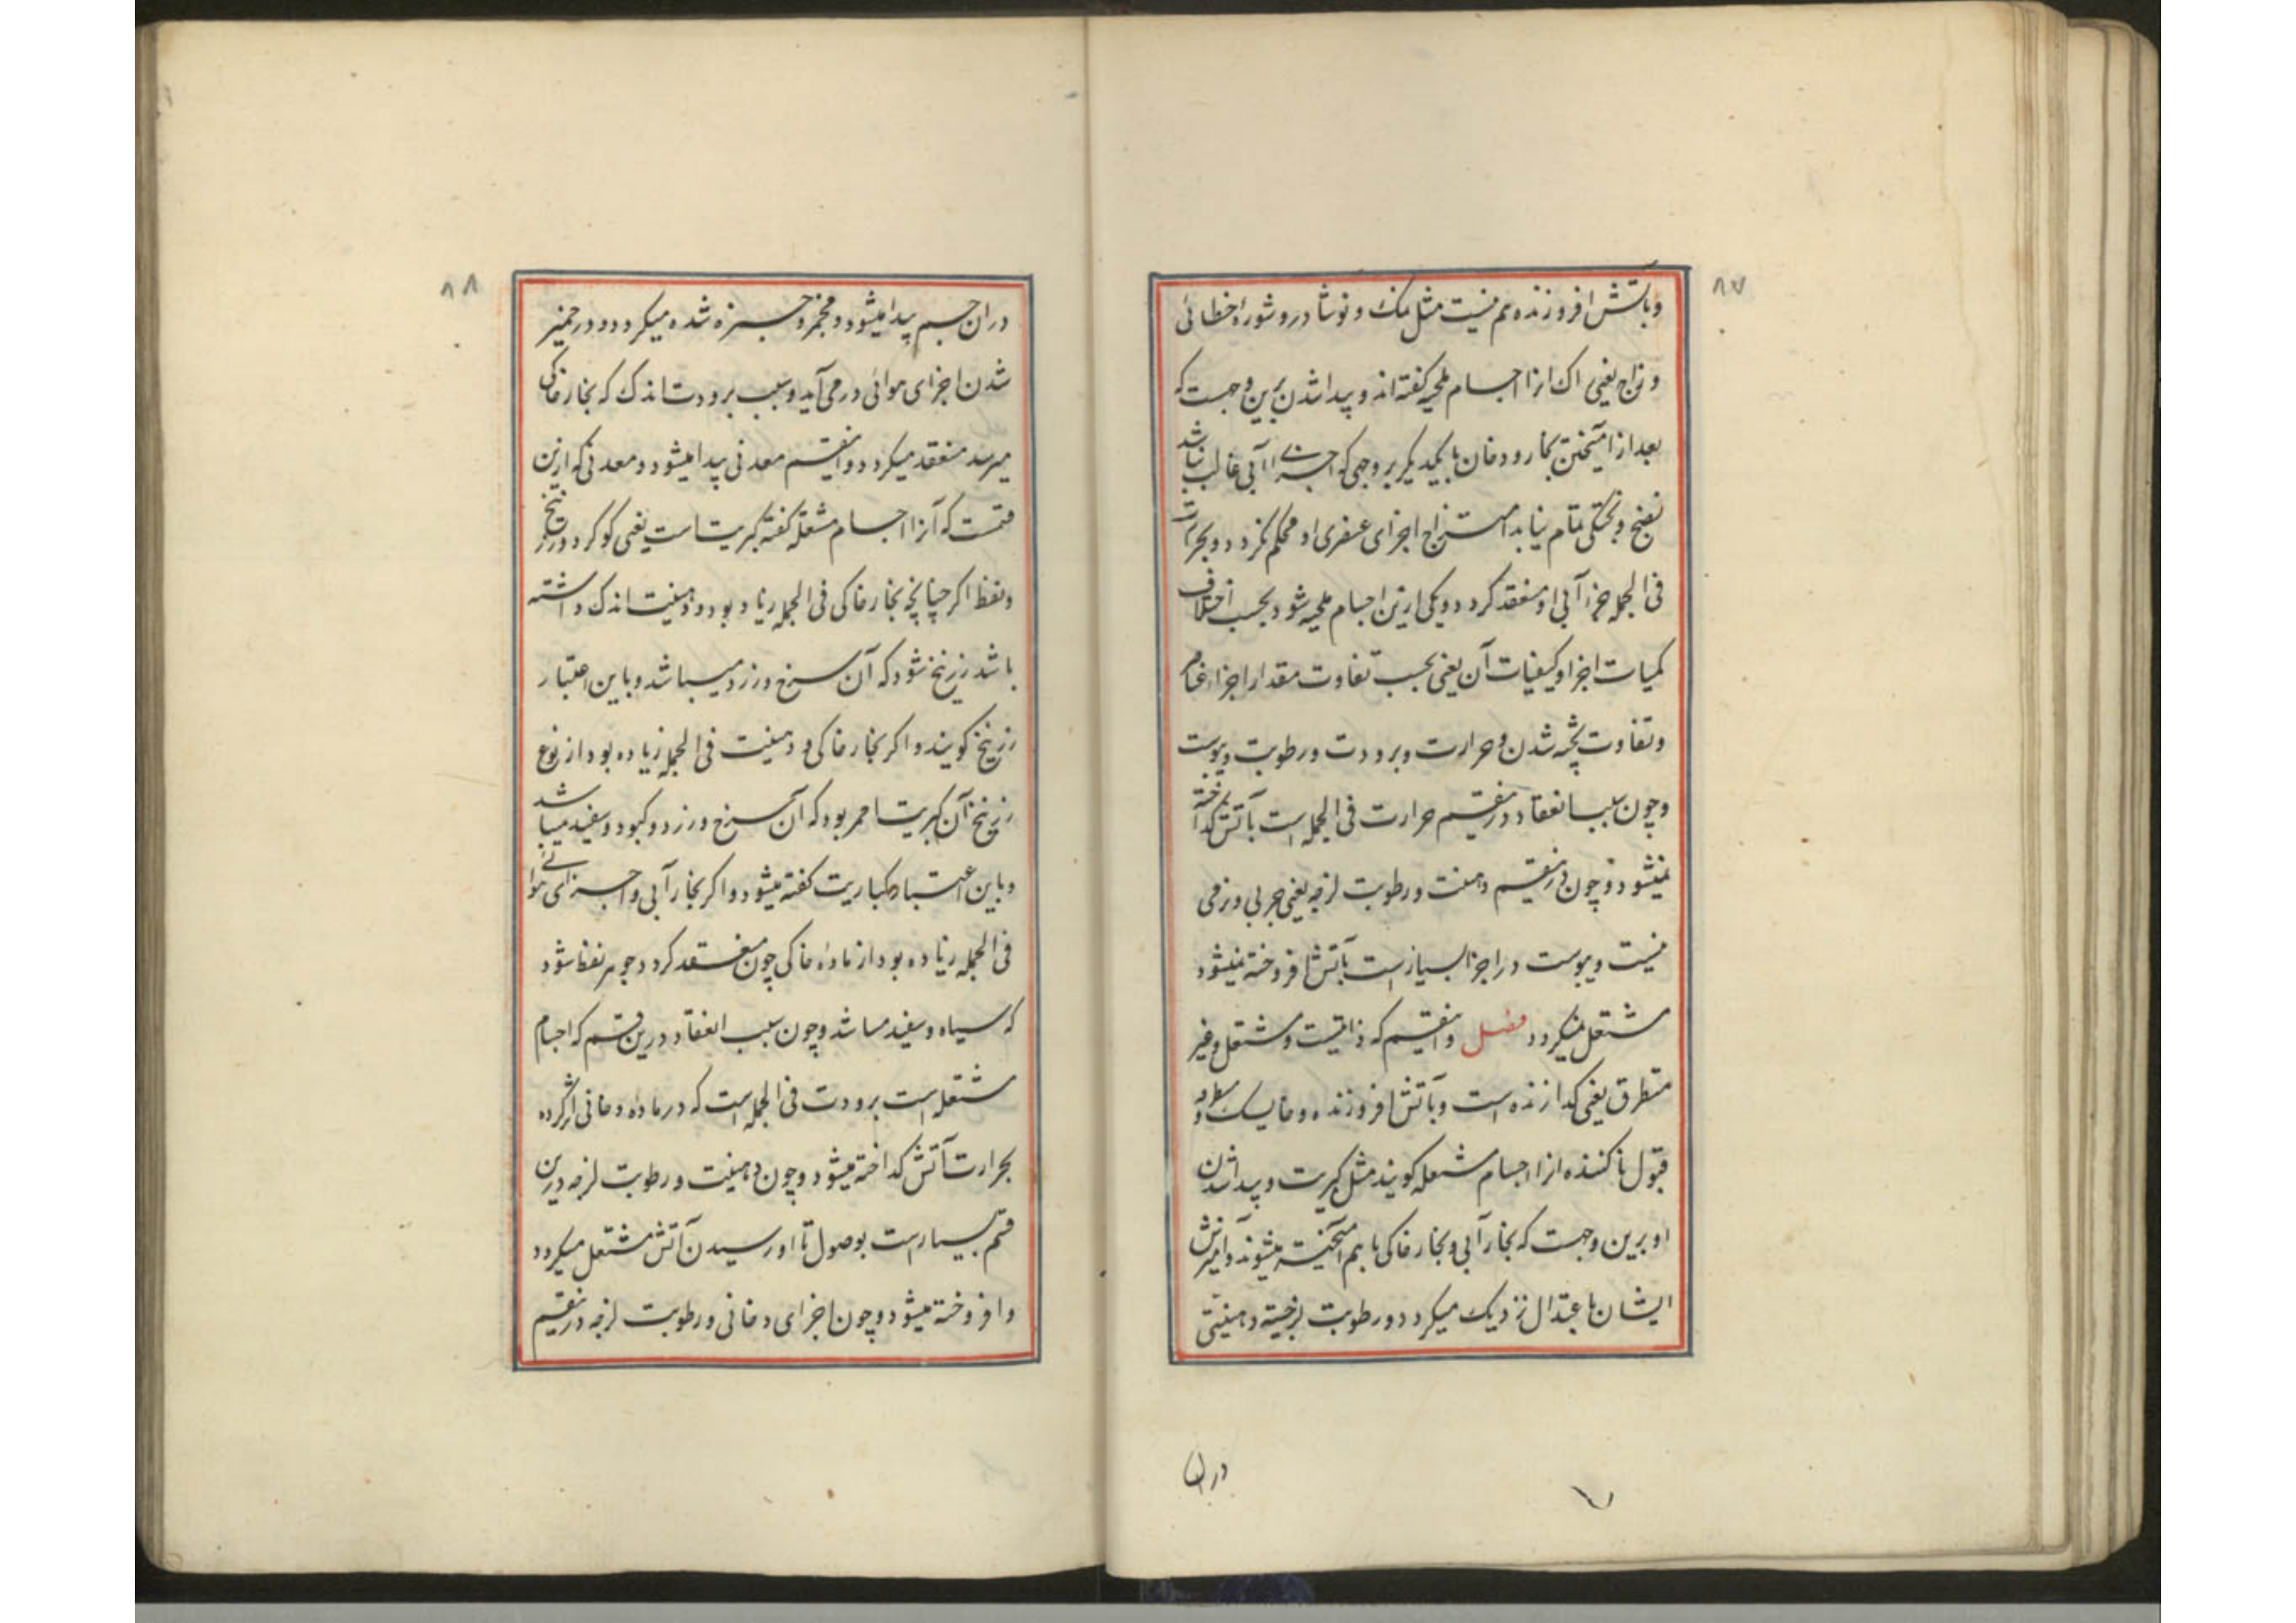 ۸۷
وبآتش افروزنده هم نیست مثل نمک و نوشادر و شوره خطائی
و زاج یعنی اک انرا اجسام ملحیه کفته اند و پیدا شدن برین وجهست که
بعد از آمیختن بخار و دخان با یکدیکر بر وجهی که اجزای آبی غالب نباشد
نضج و پختکی تمام نیابد امتزاج اجزای عنصری او محکم نکردد و بحرارت
فی الجمله جزء آبی او منعقد کردد و یکی ازین اجسام ملحیه شود بحسب اختلاف
کمیات اجزا و کیفیات آن یعنی بحسب تفاوت مقدار اجزاء
و تفاوت پخته شدن و حرارت و برودت و رطوبت و یبوست
و چون سبب انعقاد درینقسم حرارت فی الجمله است بآتش کداخته
نمیشود و چون درینقسم دهنیت و رطوبت لزجه یعنی چربی و نرمی
نیست و یبوست در اجزا بسیار است بآتش افروخته نمیشود
مشتعل نمیکردد فصل و اینقسم که ذائبست و مشتعل و غیر
متطرق یعنی کدازنده است و بآتش افروزنده و
قبول نا کننده انرا اجسام مشتعله کویند مثل کبریت و پیدا شدن
او برین وجهست که بخار آبی و بخار خاکی باهم آمیخته میشوند و آمیزش
ایشان باعتدال نزدیک میکردد و رطوبت لزجیه دهنیتی
دران
۸۸
دران جسم پیدا میشود و مخمر و جسزه شده میکردد و در خمیر
شدن اجزای هوائی درمی آید و سبب برودت اندک که بخار خاکی
میرسد منعقد میکردد و اینقسم معدنی پیدا میشود و معدنی که ازین
قسمست که آنرا اجسام مشتعله کفته کبریت است یعنی کوکرد و زرنیخ
و نفظ اکر چنانچه بخار خاکی فی الجمله زیاد بود و دهنیت اندک داشته
باشد زرنیخ شود که آن سرخ و زرد میباشد و باین اعتبار
زرنیخ کویند و اکر بخار خاکی و دهنیت فی الجمله زیاده بود از نوع
زرنیخ آن کبریت احمر بود که آن سرخ و زرد و کبود و سفید میباشد
و باین اعتبار کباریت کفته میشود و اکر بخار آبی و اجزای هوائے
فی الجمله زیاده بود از ماده خاکی چون منعقد کردد جوهر نفظ شود
که سیاه و سفید میباشد و چون سبب انعقاد درین قسم که اجسام
مشتعله است برودت فی الجمله است که در ماده دخانی اثر کرده
بحرارت آتش کداخته میشود و چون دهنیت و رطوبت لزجه درین
قسم بسیار است بوصول تا او رسیدن آتش مشتعل میکردد
و افروخته میشود و چون اجزای دخانی و رطوبت لزجه درینقسم